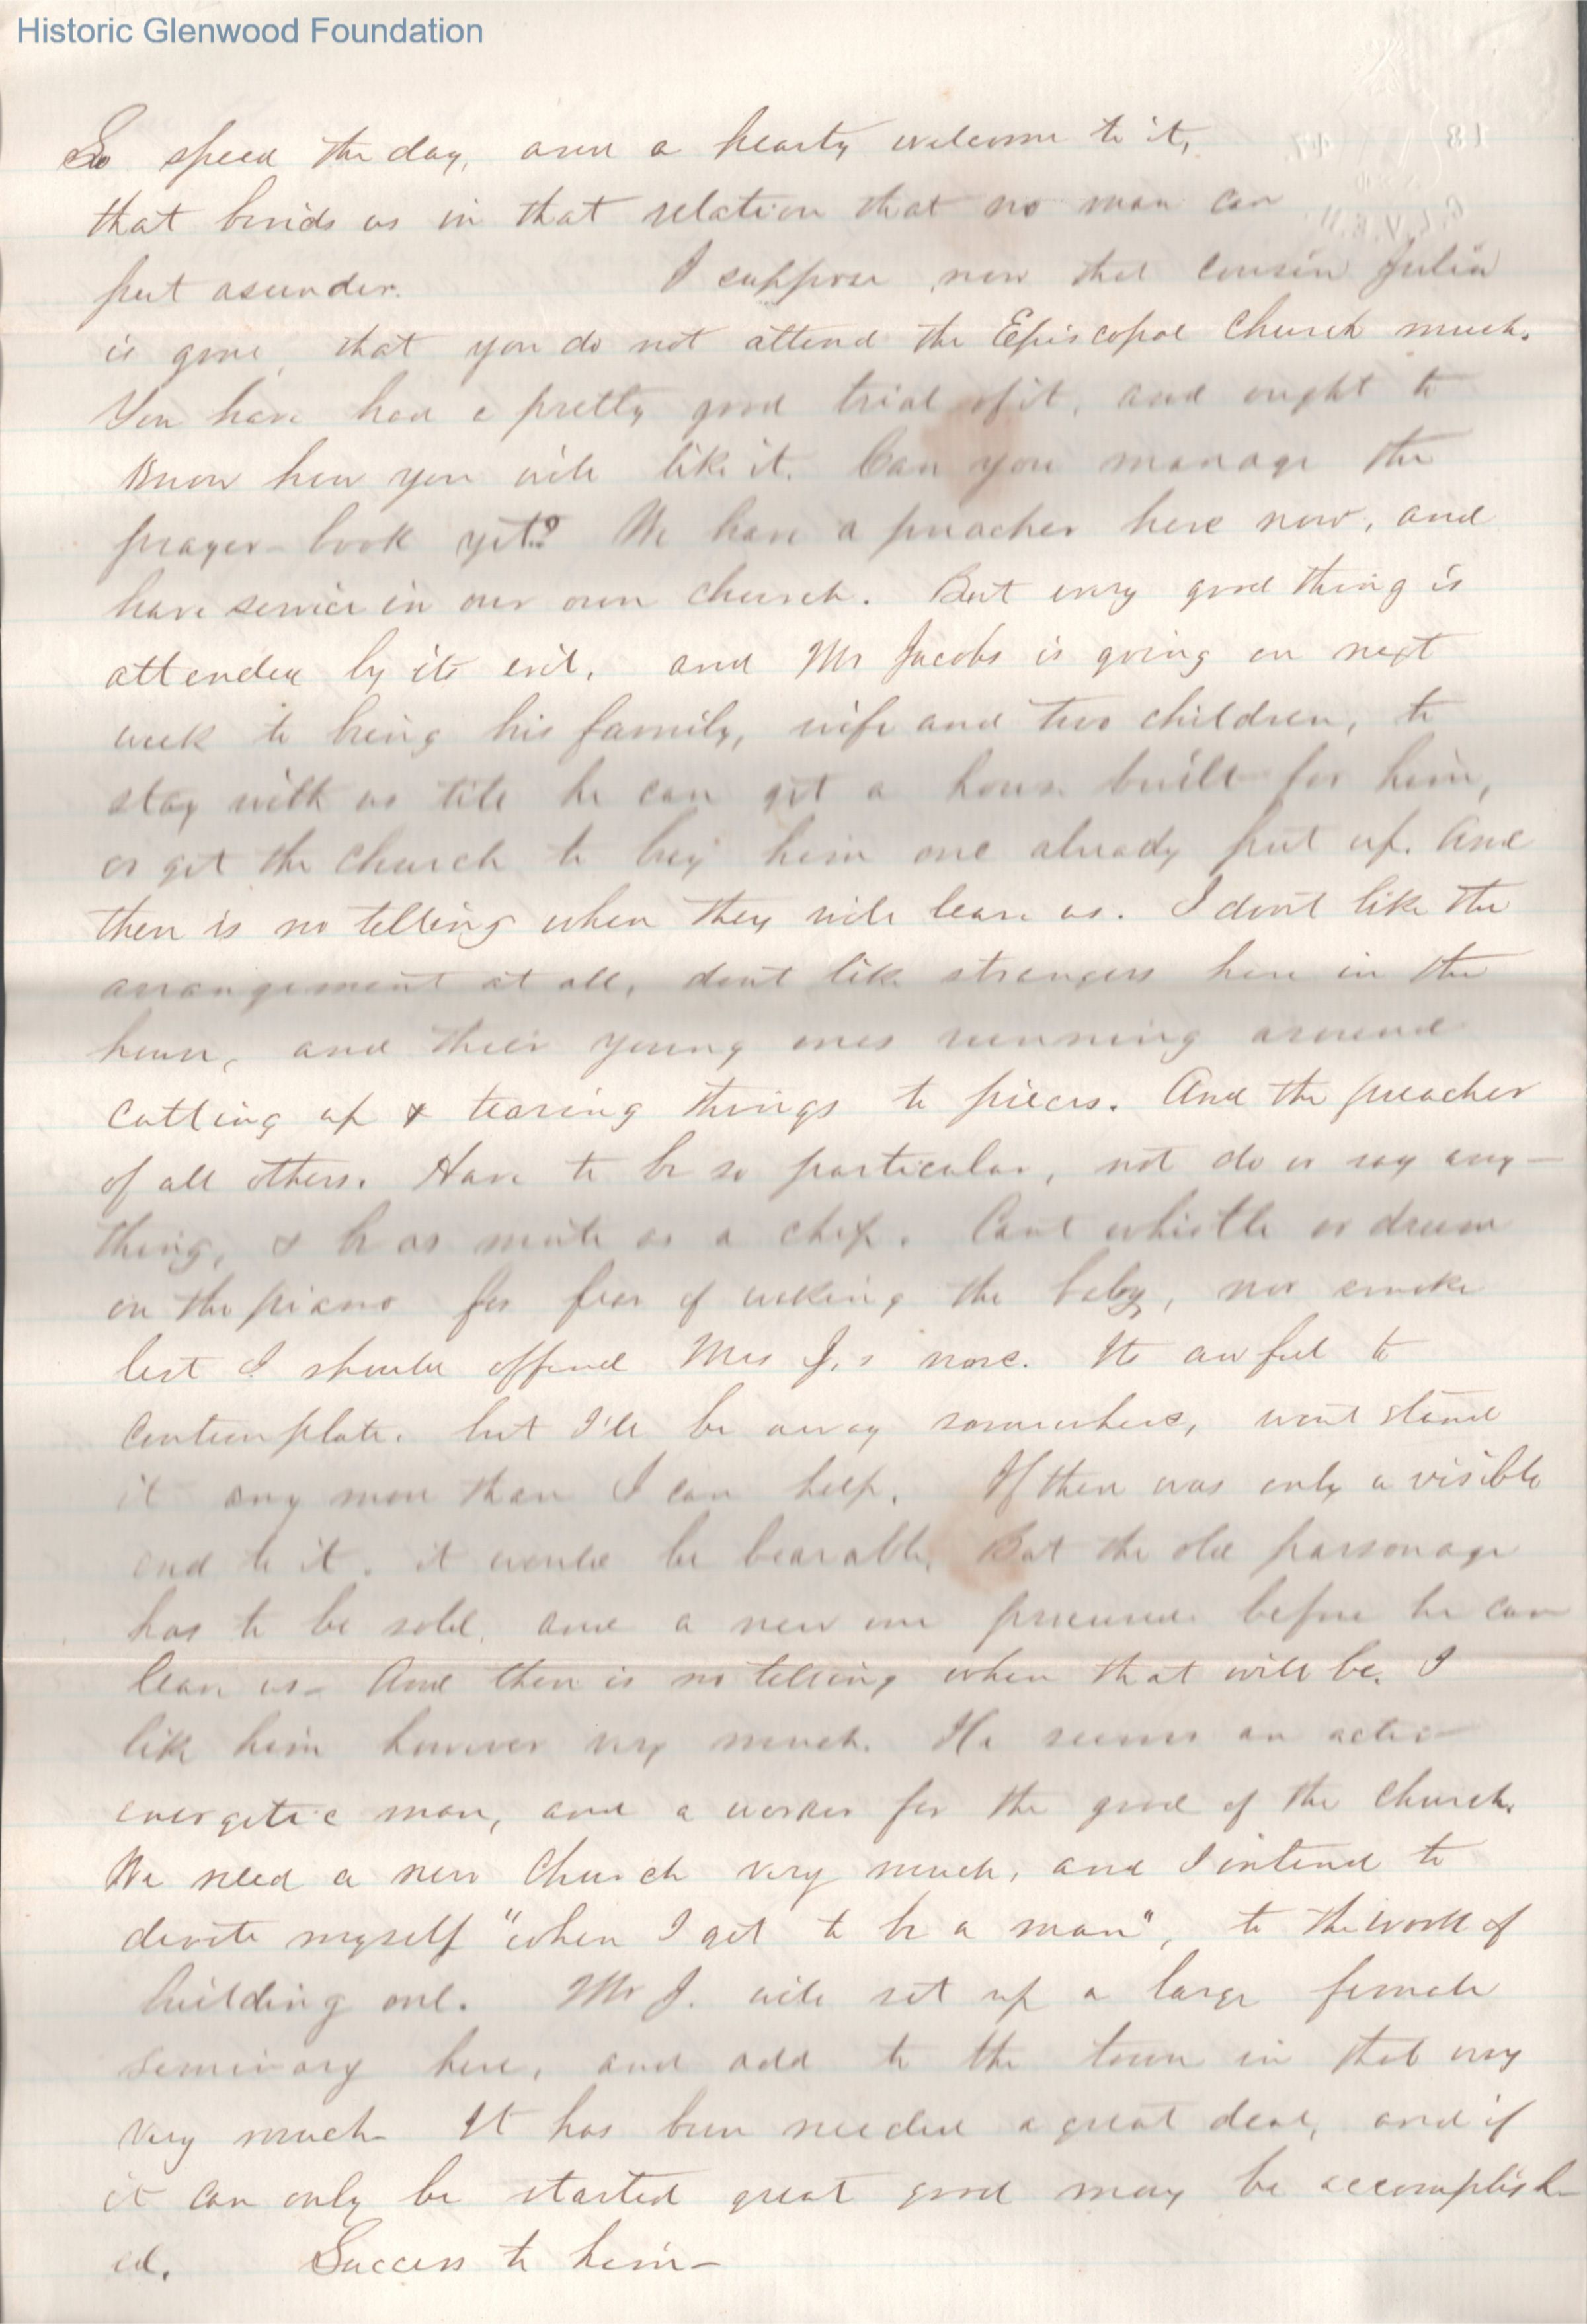 Historic Glenwood Foundation
So speed the day, and a hearty welcome to it,
that binds us in that relation that no man can
put asunder. I suppose now that cousin Julia
is gone, that you do not attend the Episcopal Church much.
You have had a pretty good trial of it, and ought to
know how you will like it. Can you manage the
prayer-book yet? We have a preacher here now, and
have service in our own church. But every good thing is
attended by its evil, and Mr Jacobs is going on next
week to bring his family, wife and two children, to
stay with us till he can get a house built for him,
or get the church to buy him one already put up. And
there is no telling when they will leave us. I dont like the
arrangement at all, dont like strangers here in the
house, and their young ones running around
cutting up & tearing things to pieces. And the preacher
of all others. Have to be so particular, not do or say any-
thing, & be as mute as a chip. Cant whistle or drum
on the piano for fear of waking the baby, nor smoke
lest I should offend Mrs J,s nose. Its awful to
contemplate. but I'll be away somewhere, wont stand
it any more than I can help. If there was only a visible
end to it. it would be bearable. But the old parsonage
has to be sold, and a new one procured before he can
leave us- And there is no telling when that will be. I
like him however very much. He seems an active
energetic man, and a worker for the good of the church.
We need a new Church very much, and I intend to
devote myself "when I get to be a man", to the work of
building one. Mr J. will set up a large female
seminary here, and add to the town in that way
very much- It has been needed a great deal, and if
it can only be started great good may be accomplish-
ed. Success to him-